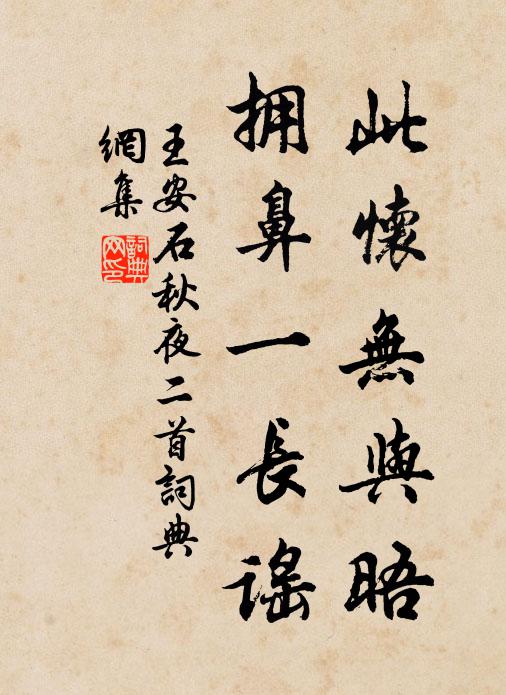 此懷無與晤
拥鼻一長謡
王安石秋夜二首詞典
網集
詞典网印